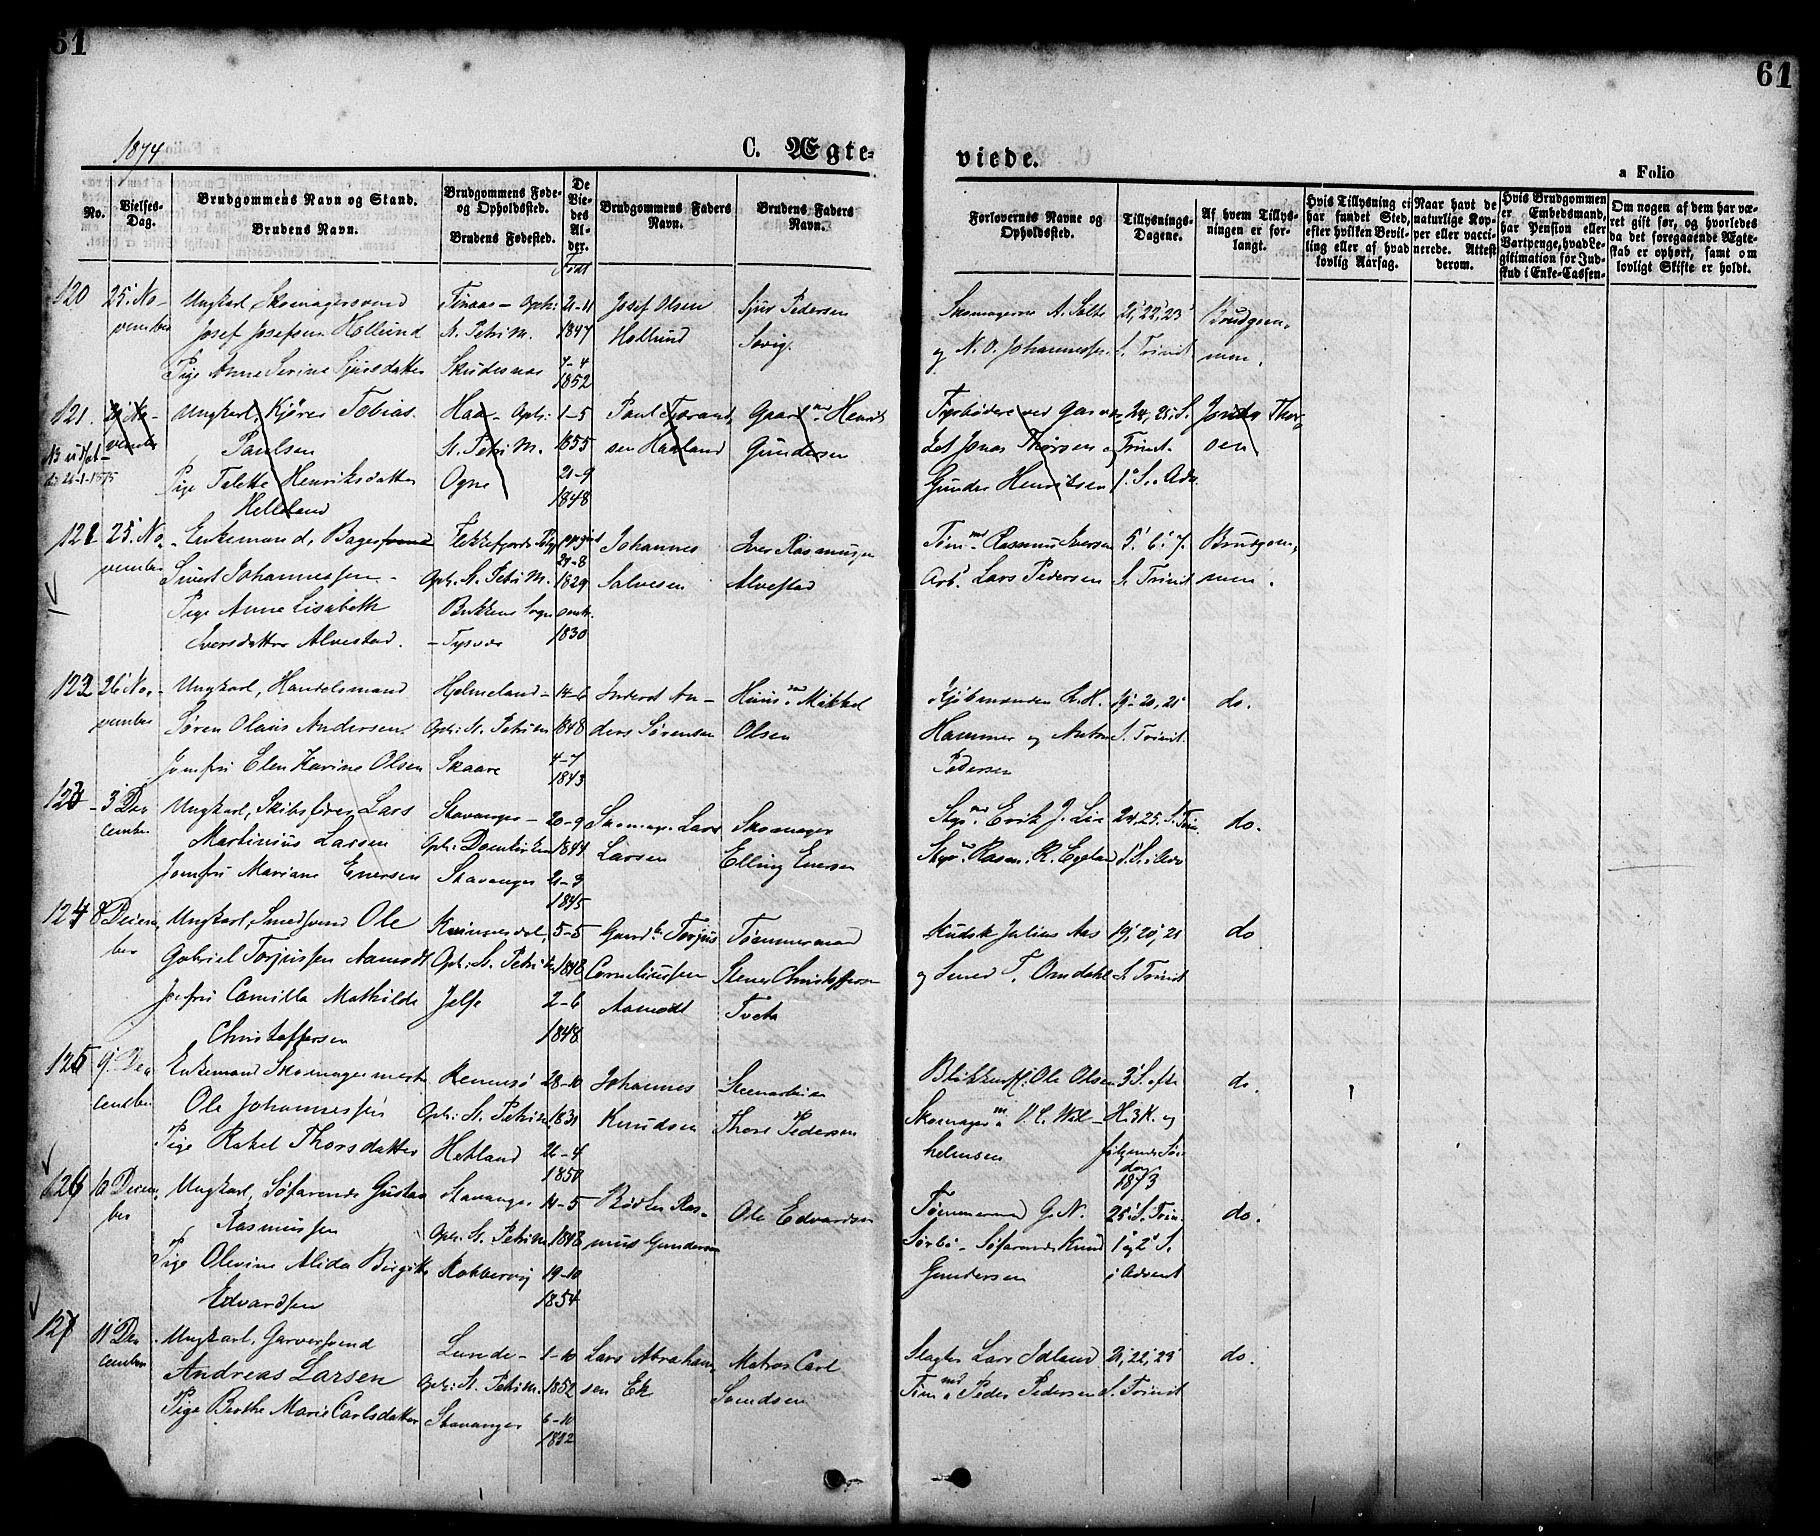 61
61
1874
C. Ægte-
viede.
a Folio
No.
Vielses-
Dag.
Brudgommens Navn og Stand.
Brudens Navn.
Brudgommens Føde-
og Opholdssted.
Brudens Fødested.
De
Vie-
des
Al-
der.
Født
Brudgommens Faders
Navn.
Brudens Faders
Navn.
Forlovernes Navne og
Opholdssted.
Tillysnings-
Dagene.
Af hvem Tillys-
ningen er for-
langt.
Hvis Tillysning ei
har fundet Sted,
efter hvilken Bevil-
ling eller af hvad
lovlig Aarsag.
Naar havt de
naturlige Kop-
per eller vacci-
nerede. Attest
derom.
Hvis Brudgommen
er Embedsmand,
har Pension eller
Vartpenge, hvad Le-
gitimation for Ind-
skud i Enke-Cassen-
Om nogen af dem har væ-
ret gift før, og hvorledes
da det foregaaende Ægte-
skab er ophørt, samt om
lovligt Skifte er holdt.
120
25' No-
vember
Ungkarl, Skomagersvend
Josef Josefsen Hollund
Pige Anne Serine Sjursdatter
Finaas - Oph:
St. Petri M.
Skudesnæs
21-11
1847
7-4
1852
Josef Olsen
Hollund
Sjur Pedersen
Sovig.
Skomagerne A. Salte
og N. O. Johannessen
21', 22', 23'
S. Trinit.
Brudgom-
men.
121.
No-
vember
Ungkarl, Kjører Tobias
Paulsen
Pige Talette Henriksdatter
Helleland
Haa - Oph:
St. Petri M.
Ogne
1-5
1855
21-9
1848
Paul
sen Haaland
Gaardm. Henrik
Gundersen
Fyrbøder ved Gasvær-
ket Jonas Thorsen og
Gunder Henriksen
24', 25' S.
Trinit.
1' S. i Adv.
Jonas Thor-
sen
121
25' No-
vember
Enkemand, Bagersvend
Sivert Johannessen -
Pige Anne Lisabeth
Iversdatter Alvestad.
Flekkefjord
Oph. St. Petri M.
Bukken Sogn
- Tysvær
opgivet
21-8
1829
1830
Johannes
Salvesen
Iver Rasmussen
Alvestad
Tømm. Rasmus Iversen
Arb. Lars Pedersen
5' 6' 7'
S. Trinit.
Brudgom-
men.
122
26' No-
vember
Ungkarl, Handelsmand
Søren Olaus Andersen
Jomfru Elen Karine Olsen
Hjelmeland -
Oph: St. Petri M.
Skaare
14-6
1848
4-7
1843
Inderst An-
ders Sørensen
Huusm. Mikkel
Olsen
Kjøbmændene L. H.
Hammer og Anton
Pedersen
19', 20', 21'
S. Trinit.
do.
123
3' De-
cember
Ungkarl, Skibsfører Lars
Martinius Larsen
Jomfru Mariane Enersen
Stavanger -
Oph: Domkirken
Stavanger
20-9
1844
21-3
1845
Skomager Lars
Larsen
Skomager
Elling Enersen
Styrm. Erik J. Lie
Styrm. Rasm. R. Egeland
24', 25' S. Trin.
1' S. i Adv.
do.
124
8' Decem-
ber
Ungkarl, Smedsvend Ole
Gabriel Torjussen Aamodt
Jomfru Camilla Mathilde
Christoffersen
Kvinnesdal,
Oph: St. Petri M.
Jelse
5-5
1848
2-6
1848
Gaardbr. Torjus
Corneliussen
Aamodt
Tømmermand
Stener Christoffersen
Tveta
Kudsk Julius Aas
og Smed T. Omdahl
19', 20', 21
S. Trinit
do
125
9' De-
cember
Enkemand Skomagermester
Ole Johannessen
Pige Rakel Thorsdatter
Rennesø
Oph: St. Petri M.
Hetland
28-10
1831
26-4
1850
Johannes
Knudsen
Steenarbeider
Thore Pedersen
Blikkensl. Ole Olsen
Skomagerm. O. C. Wil-
helmsen
3' S. efter
H. 3 K. og
følgende Søn-
dag
1873
do.
126
10' Decem-
ber
Ungkarl, Søfarende Gustav
Rasmussen
Pige Olevine Alida Birgitte
Edvardsen
Stavanger
Oph. St. Petri M.
Kobbervig
14-5
1848
19-10
1854
Bødker Ras-
mus Gundersen
Ole Edvardsen
Tømmermd G. N.
Sørbø - Søfarende Knud
Gundersen
25' S. Trin.
1' og 2' S.
i Advent
do.
127
11' De-
cember
Ungkarl, Garversvend
Andreas Larsen
Pige Berthe Marie Carlsdatter
Lunde -
Oph: St. Petri M.
Stavanger
1-10
1852
6-10
1852
Lars Abraham-
sen Ek
Matros Carl
Svendsen
Slagter Lars Idland
Tømmd. Peder Pedersen
21', 22', 23'
S. Trinit
do.